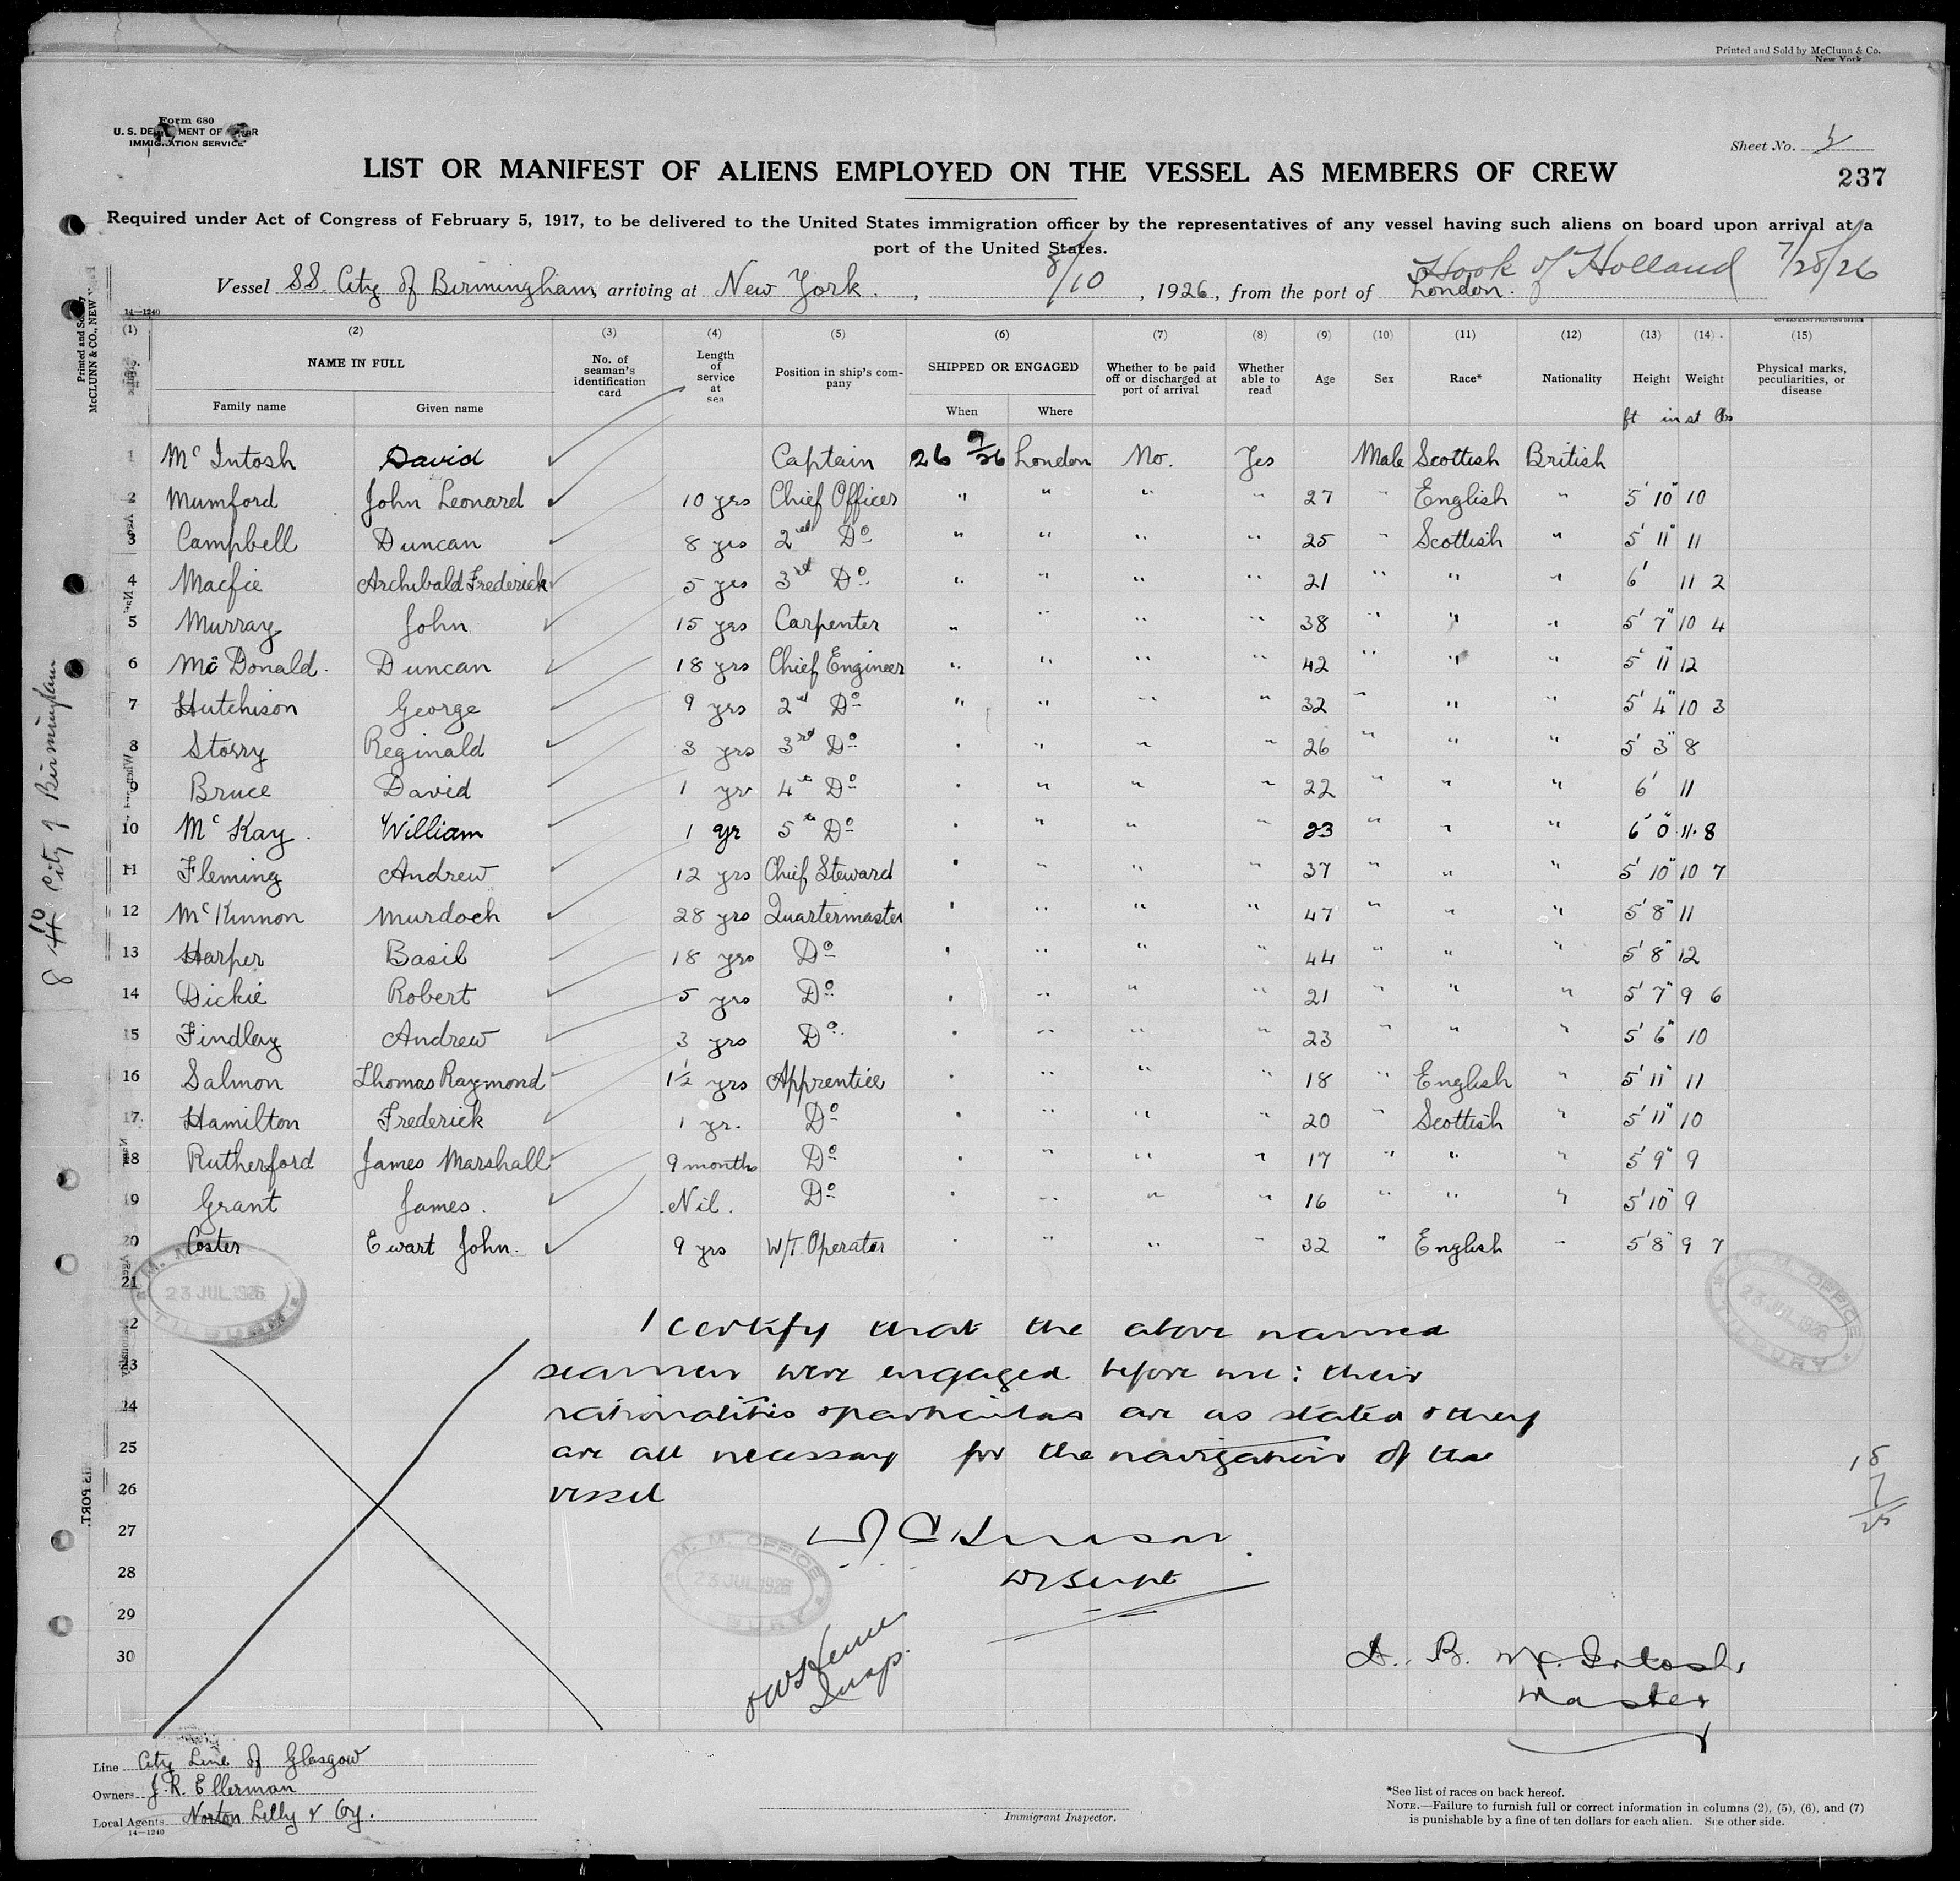 Printed and Sold by McClunn & Co.
New York
Form 680
U. S. DEPARTMENT OF LABOR
IMMIGRATION SERVICE
Sheet No.
LIST OR MANIFEST OF ALIENS EMPLOYED ON THE VESSEL AS MEMBERS OF CREW
237
Required under Act of Congress of February 5, 1917, to be delivered to the United States immigration officer by the representatives of any vessel having such aliens on board upon arrival at a
port of the United States.
Hook of Holland 7/28/26
Vessel SS. City of Birmingham, arriving at New York. , 8/10 , 1926, from the port of London.
14—1240
GOVERNMENT PRINTING OFFICE
(1) (2) (3) (4) (5) (6) (7) (8) (9) (10) (11) (12) (13) (14) (15)
NAME IN FULL No. of seaman's identification card Length of service at sea Position in ship's company SHIPPED OR ENGAGED Whether to be paid off or discharged at port of arrival Whether able to read Age Sex Race* Nationality Height Weight Physical marks, peculiarities, or disease
Family name Given name When Where ft in st lbs
1 McIntosh David Captain 26 7/26 London No. Yes Male Scottish British
2 Mumford John Leonard 10 yrs Chief Officer " " " " 27 " English " 5' 10" 10
3 Campbell Duncan 8 yrs 2nd Do " " " " 25 " Scottish " 5' 11" 11
4 Macfie Archibald Frederick 5 yrs 3rd Do " " " " 21 " " " 6' 11 2
5 Murray John 15 yrs Carpenter " " " " 38 " " " 5' 7" 10 4
6 McDonald. Duncan 18 yrs Chief Engineer " " " " 42 " " " 5' 11" 12
7 Hutchison George 9 yrs 2nd Do " " " " 32 " " " 5' 4" 10 3
8 Storry Reginald 3 yrs 3rd Do " " " " 26 " " " 5' 3" 8
9 Bruce David 1 yr 4th Do " " " " 22 " " " 6' 11
10 McKay. William 1 yr 5th Do " " " " 23 " " " 6' 0" 11.8
11 Fleming Andrew 12 yrs Chief Steward " " " " 37 " " " 5' 10" 10 7
12 McKinnon Murdoch 28 yrs Quartermaster " " " " 47 " " " 5' 8" 11
13 Harper Basil 18 yrs Do " " " " 44 " " " 5' 8" 12
14 Dickie Robert 5 yrs Do " " " " 21 " " " 5' 7" 9 6
15 Findlay Andrew 3 yrs Do. " " " " 23 " " " 5' 6" 10
16 Salmon Thomas Raymond 1½ yrs Apprentice " " " " 18 " English " 5' 11" 11
17 Hamilton Frederick 1 yr. Do " " " " 20 " Scottish " 5' 11" 10
18 Rutherford James Marshall 9 months Do " " " " 17 " " " 5' 9" 9
19 Grant James. Nil. Do " " " " 16 " " " 5' 10" 9
20 Coster Ewart John. 9 yrs W/T. Operator " " " " 32 " English " 5' 8" 9 7
21
M. M. OFFICE
23 JUL 1926
TILBURY
M. M. OFFICE
23 JUL 1926
TILBURY
22 I certify that the above named
23 seamen were engaged before me: their
24 nationalities & particulars are as stated & they
25 are all necessary for the navigation of the
26 vessel
27
28
M. M. OFFICE
23 JUL 1926
29
30
D. B. McIntosh
Master
Line City Line of Glasgow
Owners J. R. Ellerman
Local Agents Norton Lilly & Coy.
14—1240
Immigrant Inspector.
*See list of races on back hereof.
NOTE.—Failure to furnish full or correct information in columns (2), (5), (6), and (7)
is punishable by a fine of ten dollars for each alien. See other side.
Printed and Sold by
McCLUNN & CO., NEW
8/10 City of Birmingham